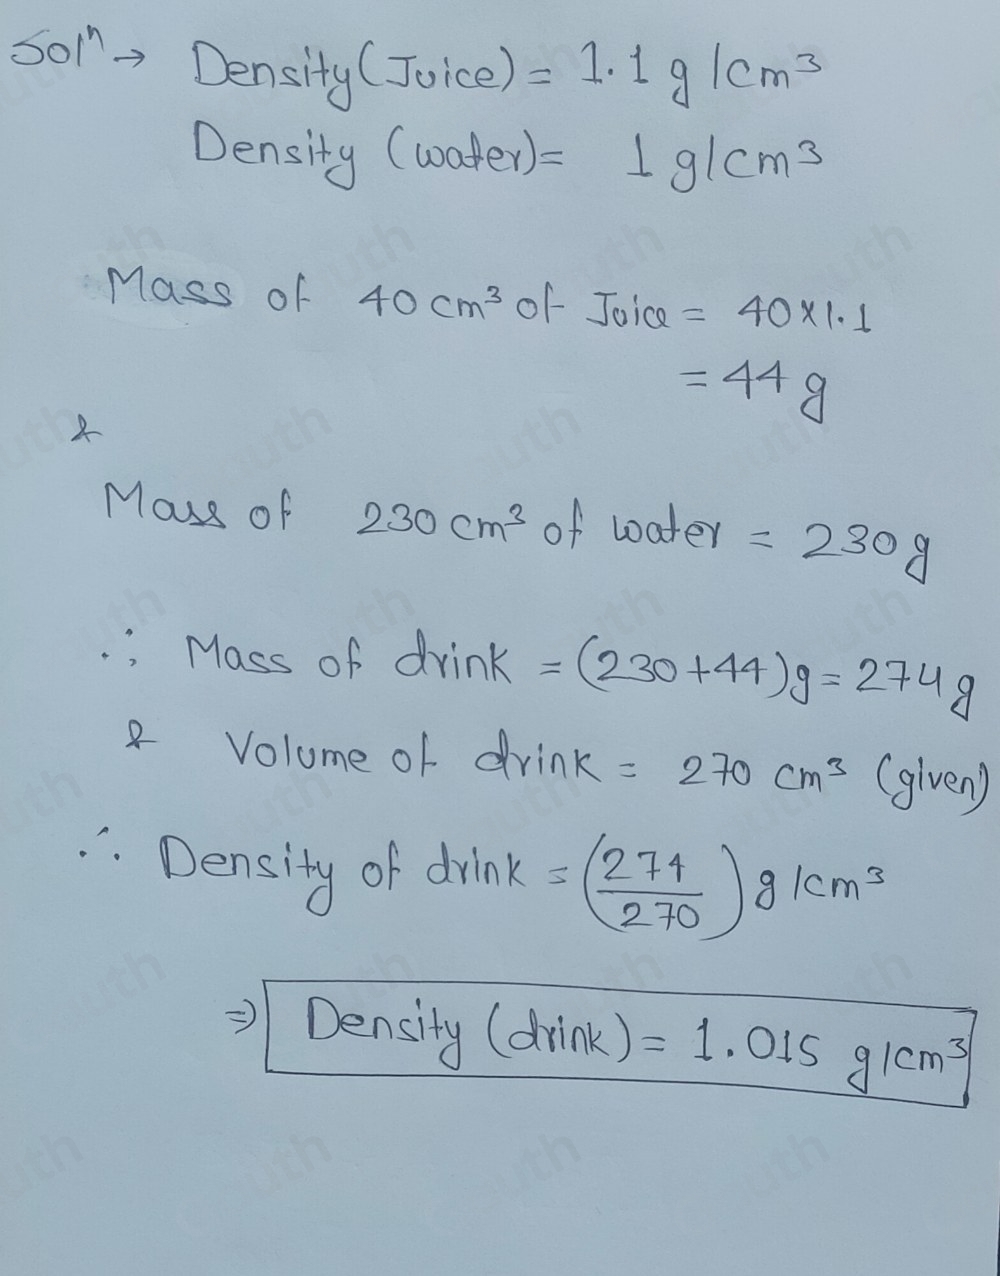 Solⁿ → Density (Juice) = 1.1 g/cm³
Density (water) = 1 g/cm³
Mass of 40 cm³ of Juice = 40×1.1
= 44 g
&
Mass of 230 cm³ of water = 230 g
∴ Mass of drink = (230+44)g = 274 g
& Volume of drink = 270 cm³ (given)
∴ Density of drink = (274/270) g/cm³
⇒ Density (drink) = 1.015 g/cm³